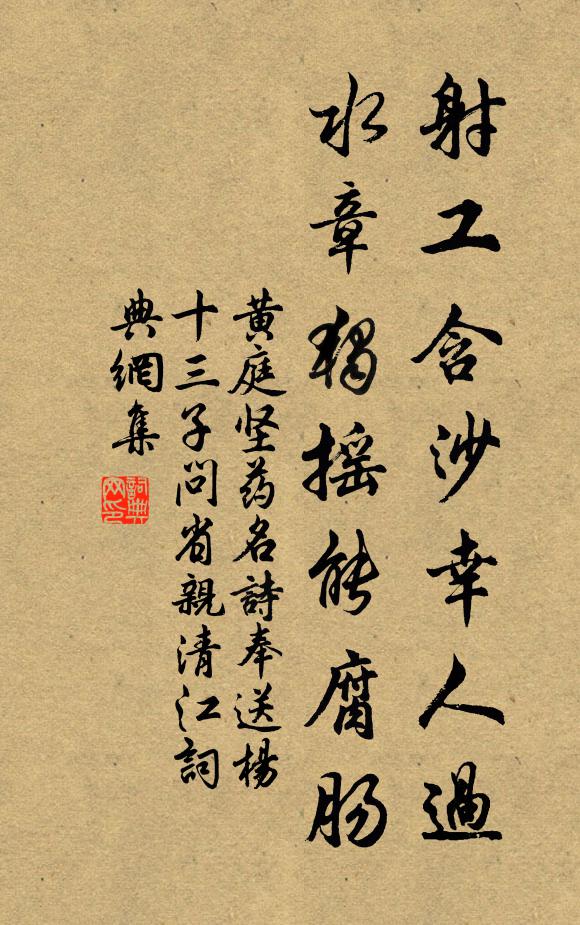 射工含沙幸人過
水章獨摇能腐肠
黄庭坚药名詩奉送楊
十三子問省親清江詞
典網集
詞典
网印